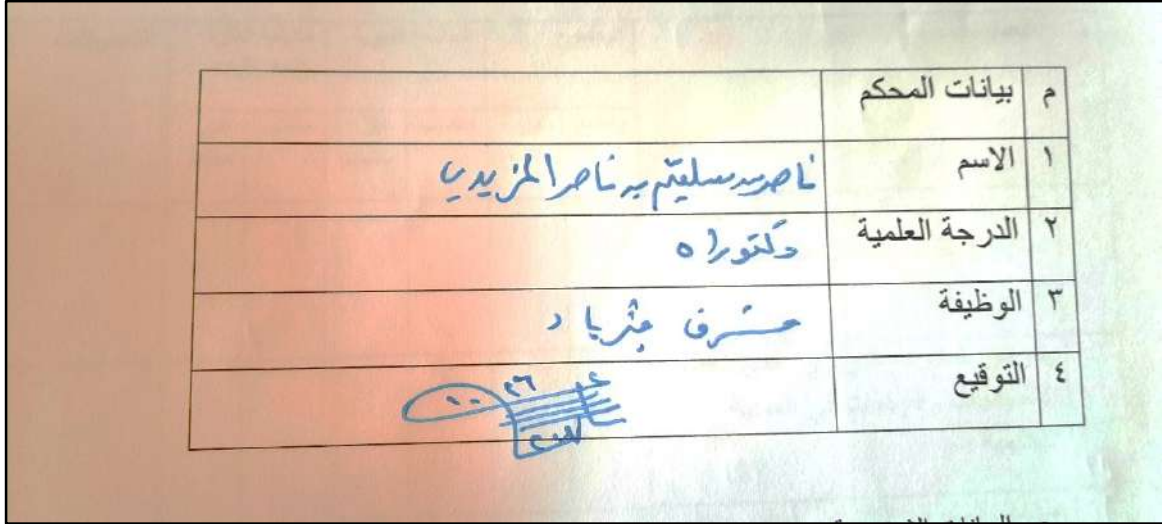 م بيانات المحكم
١ الاسم ناصر بن سليم بن ناصر المزيدي
٢ الدرجة العلمية دكتوراه
٣ الوظيفة مشرف فيزياء
٤ التوقيع